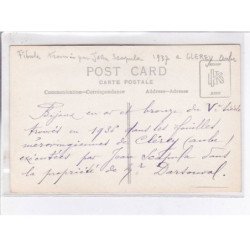 Fibule trouvée par Jean Scapula 1937 à CLEREY Aube
POST CARD
CARTE POSTALE
Communication—Correspondence
Address—Adresse
Bijoux en or et bronze du Vᵉ siècle
trouvés en 1936 dans les fouilles
mérovingiennes de Clérey (aube)
exécutées par Jean Scapula dans
la propriété de Mʳ Dartonval